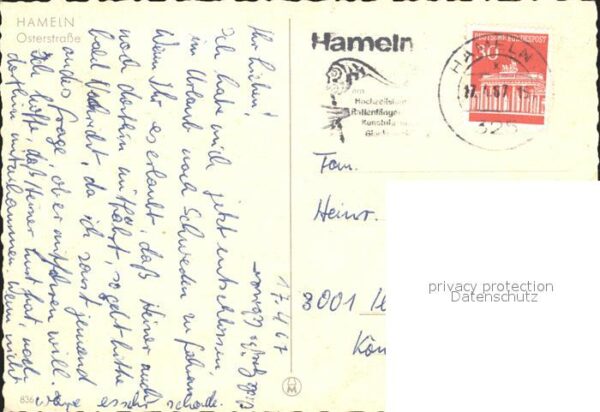 HAMELN
Osterstraße
17.4.67
Ihr Lieben!
Ich habe mich jetzt entschlossen,
im Urlaub nach Schweden zu fahren.
Wenn Ihr es erlaubt, daß Heiner auch
noch dorthin mitfährt, so gebt bitte
bald Nachricht, da ich sonst jemand
anders frage, ob er mitfahren will.
Ich hoffe, daß Heiner Lust hat, noch
dorthin mitzukommen, denn
wäre es sehr schade.
Hameln
Hochzeitshaus
Rattenfänger
Kunstuhr
DEUTSCHE BUNDESPOST
30
HAMELN
325
Fam.
Heinr.
3001
836
privacy protection
Datenschutz